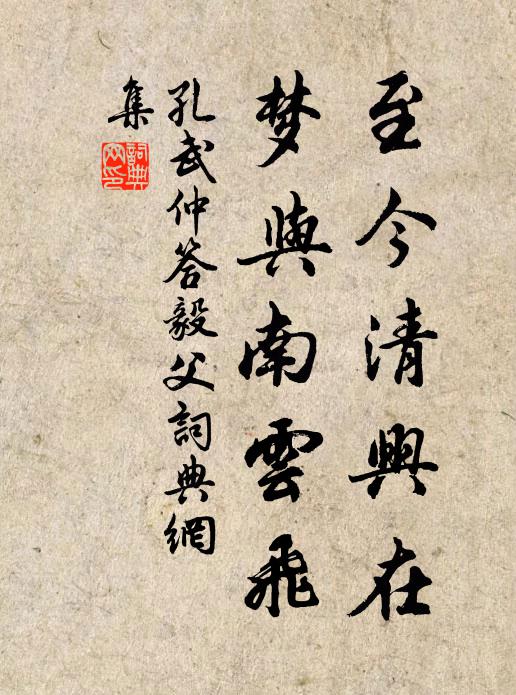 至今清興在
梦與南雲飛
孔武仲答毅父詞典網
集
詞典
网印